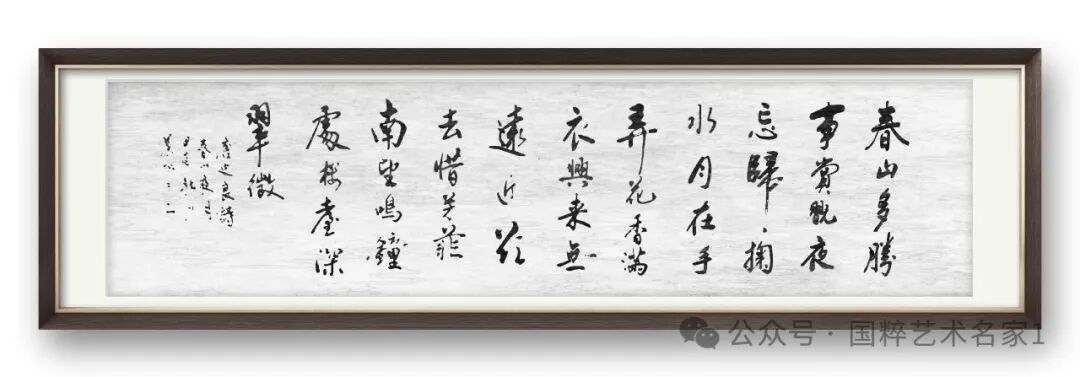 春山多勝
事賞翫夜
忘歸掬
水月在手
弄花香滿
衣興来無
遠近欲
去惜芳菲
南望鳴鐘
處樓臺深
翠微
良詩
春山夜月
公众号 · 国粹艺术名家1